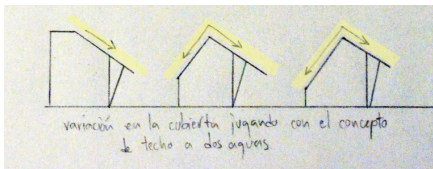 variación en la cubierta jugando con el concepto
de techo a dos aguas